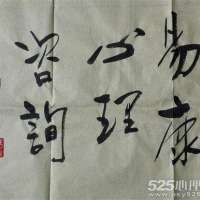 易康
心理
咨詢
525心理网
www.psy525.cn